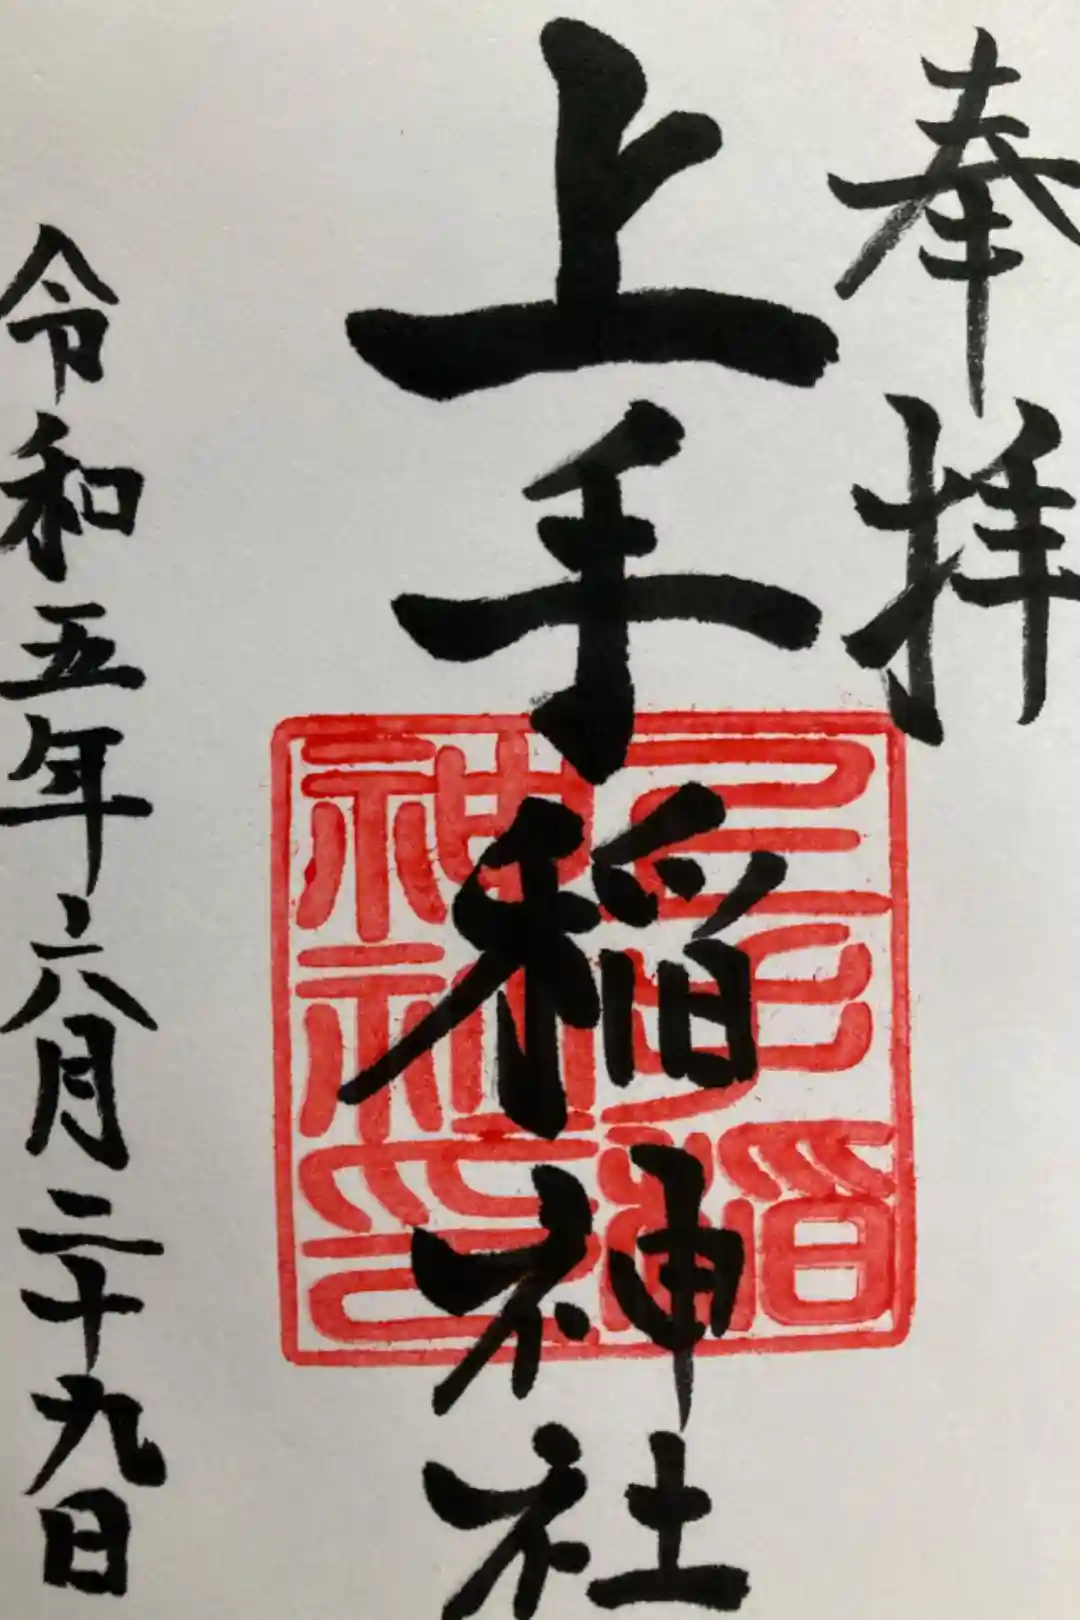 奉拝
上手稲神社
上手稲神社印
令和五年六月二十九日